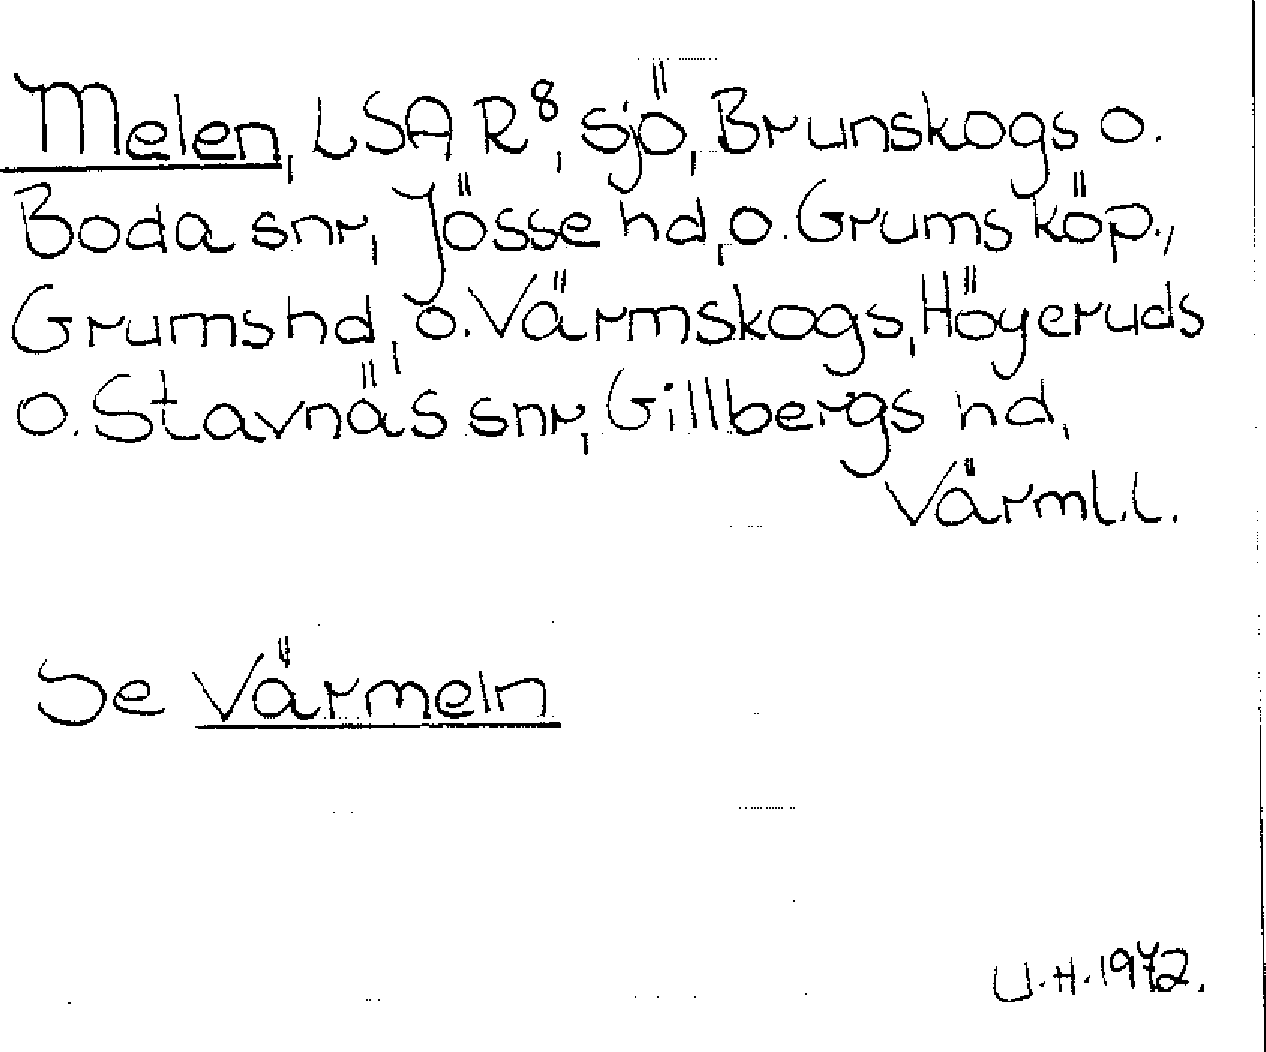 Melen, LSA R⁸, sjö, Brunskogs o.
Boda snr, Jösse hd, o. Grums köp.,
Grums hd, o. Värmskogs, Höyeruds
o. Stavnäs snr, Gillbergs hd,
Värml.l.
Se Värmeln
U.H. 1972.